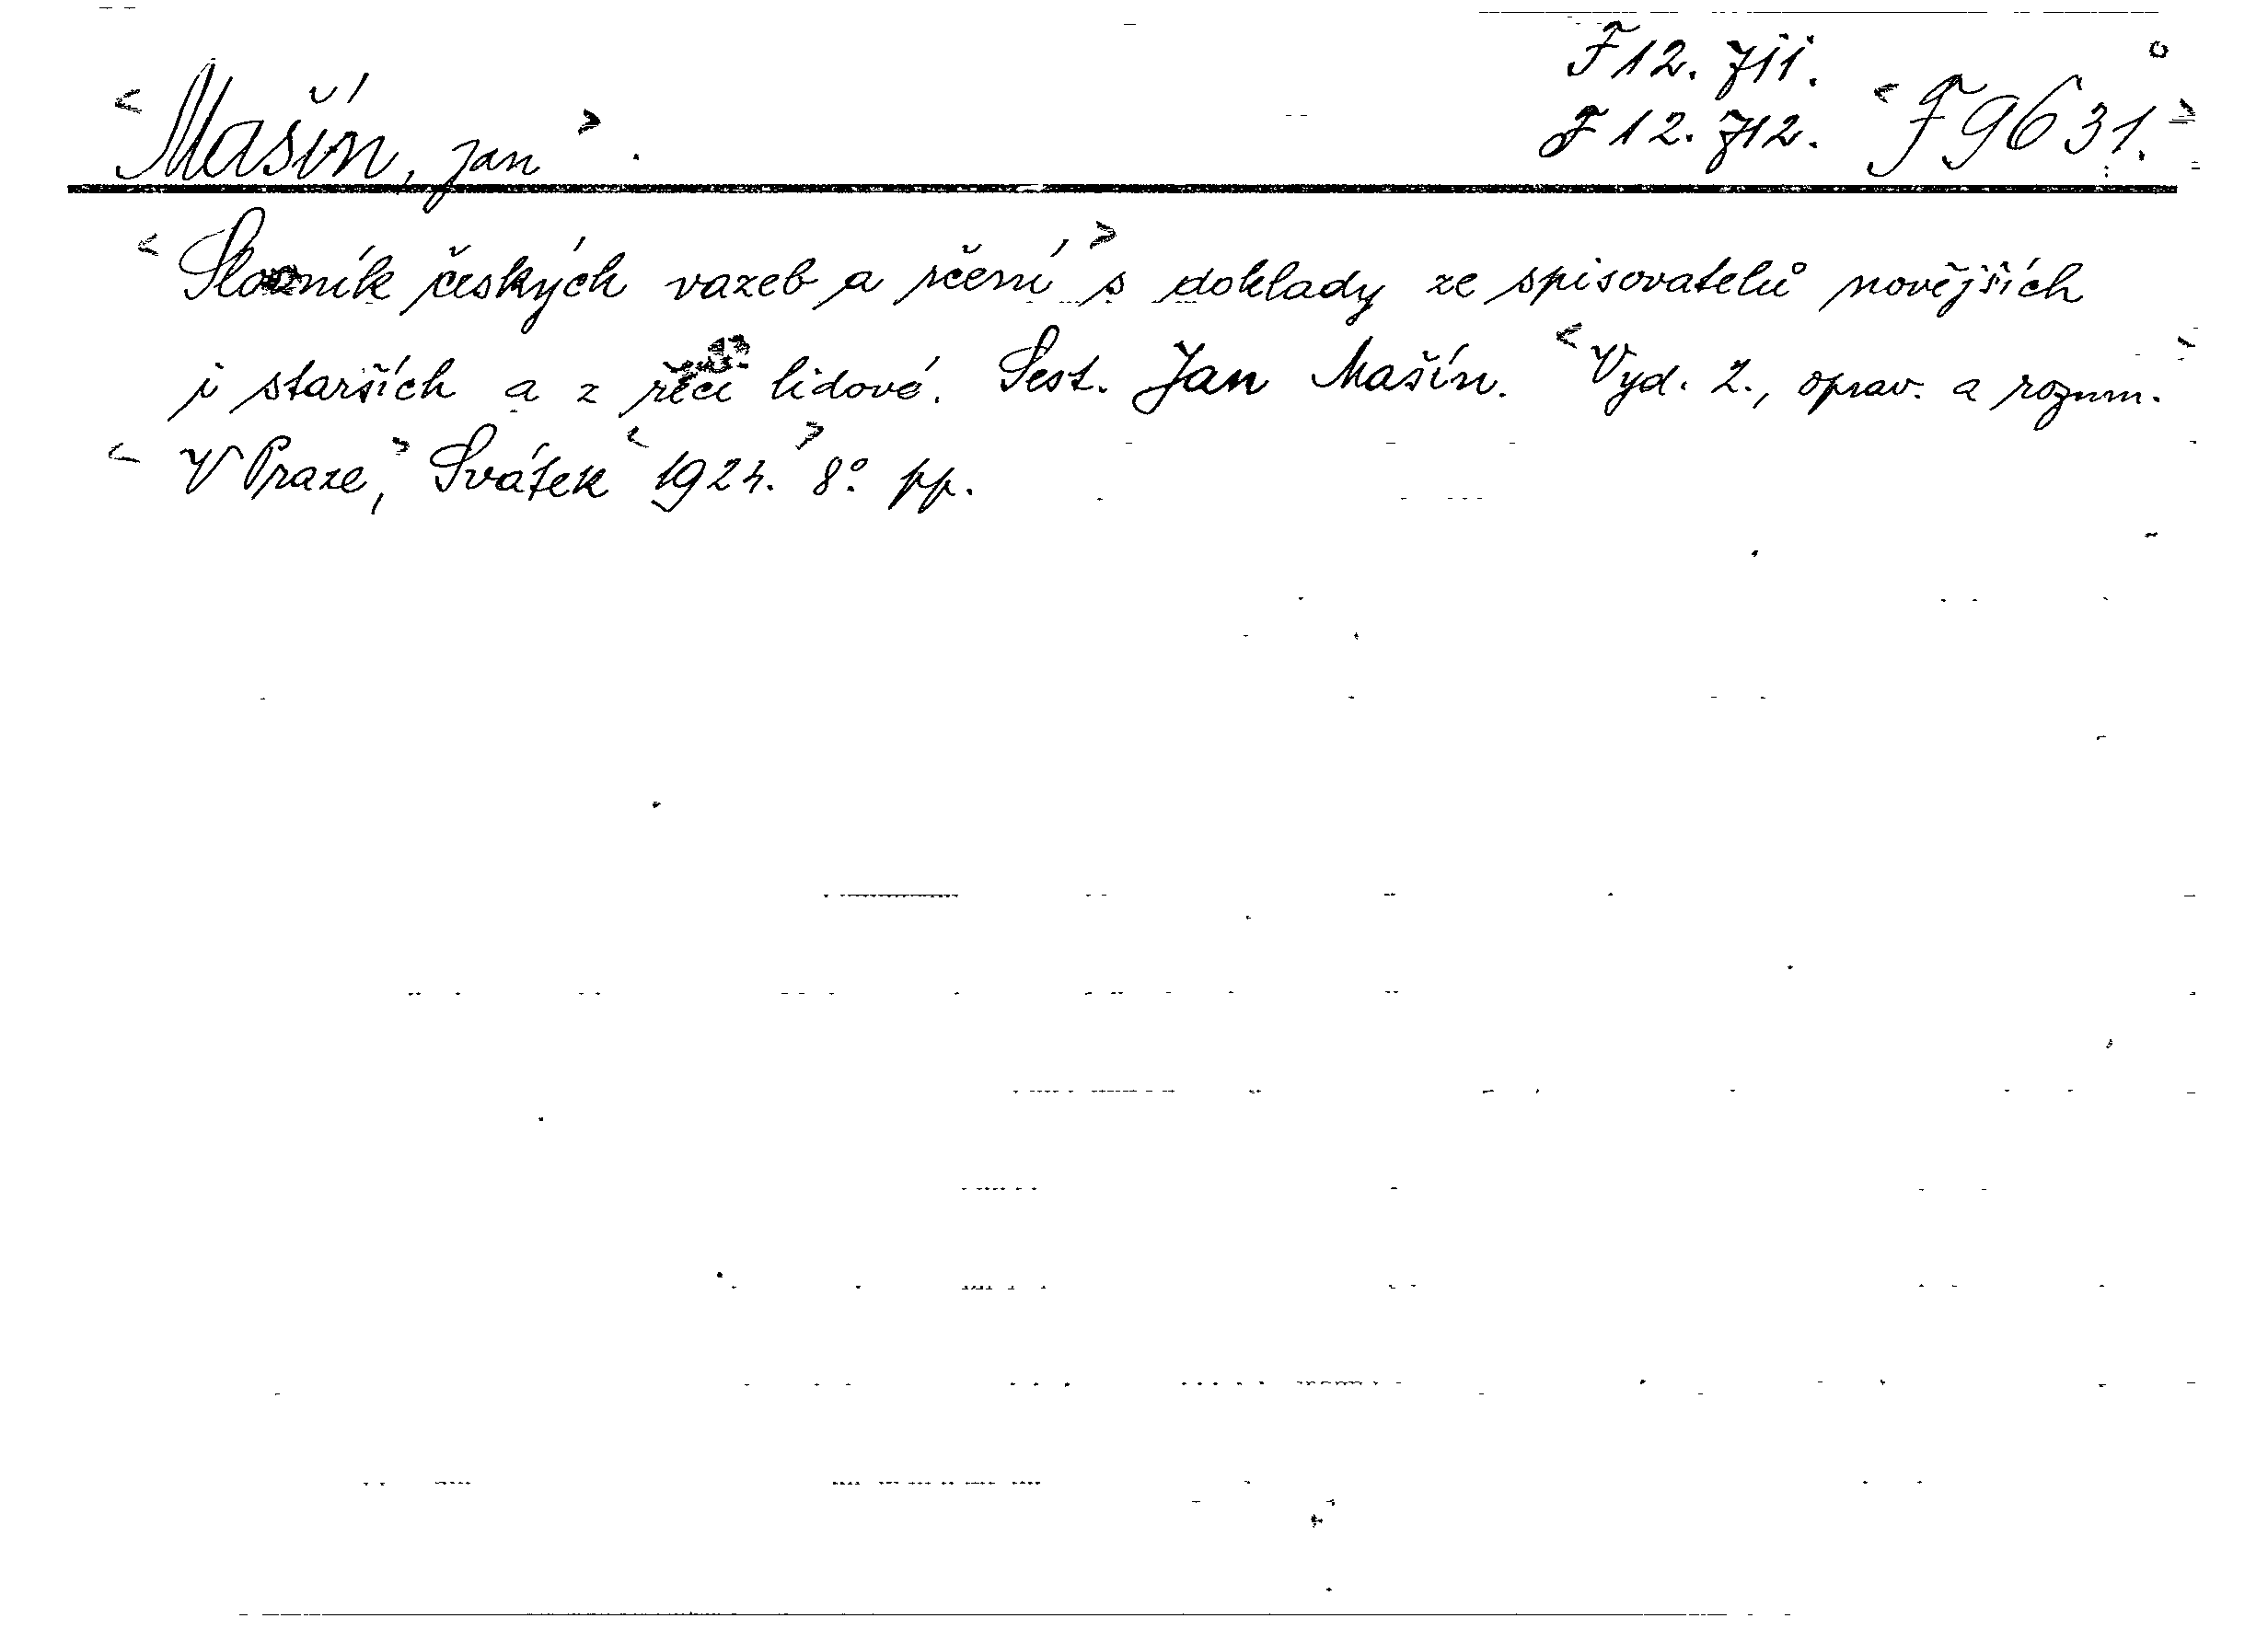 F 12.711.
F 12.712. <F 9631.>
<Mašín, Jan>.
<Slovník českých vazeb a rčení> s doklady ze spisovatelů novějších
i starších a z řeči lidové. Sest. Jan Mašín. <Vyd. 2., oprav. a rozmn.>
<V Praze,> Svátek <1924.> 8° pp.